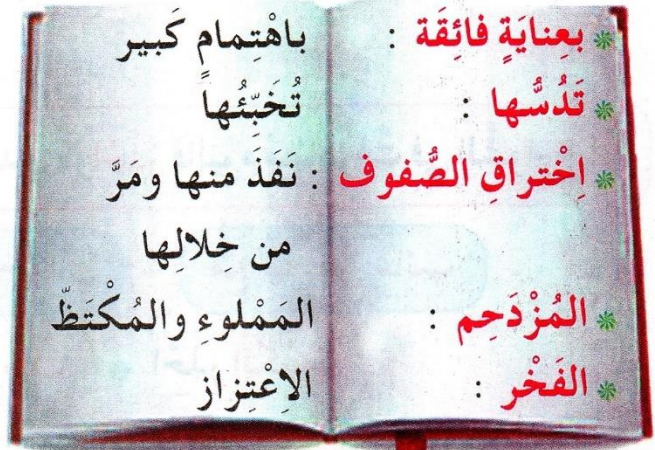 بعِنايَةٍ فائِقَة : باهْتِمامٍ كَبير
تَدُسُّها : تُخَبِّئُها
اِخْتراقِ الصُّفوف : نَفَذَ منها ومَرَّ
من خِلالِها
المُزْدَحِم : المَمْلوءِ والمُكْتَظّ
الفَخْر : الاِعْتِزاز